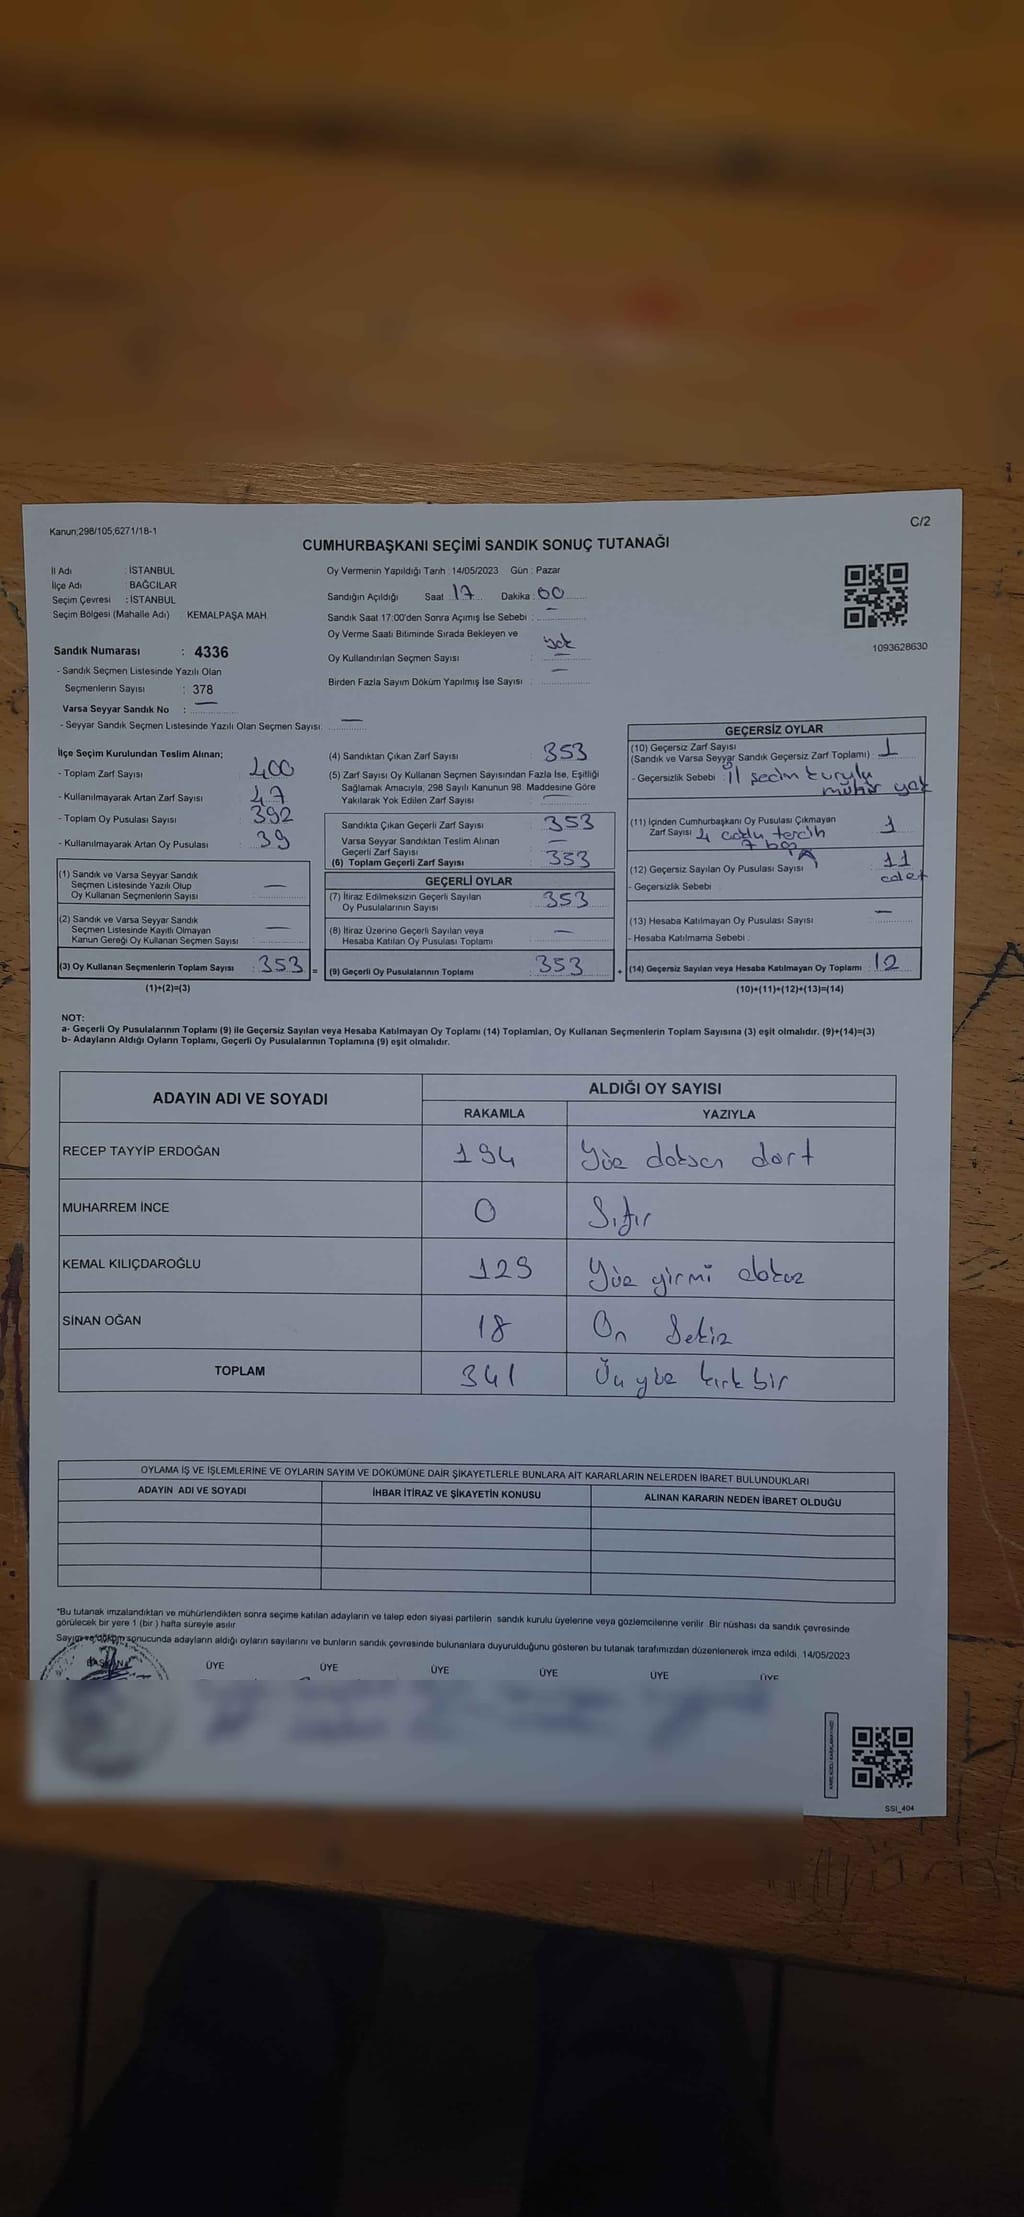 Kanun;298/105,6271/18-1
C/2
CUMHURBAŞKANI SEÇİMİ SANDIK SONUÇ TUTANAĞI
İl Adı : İSTANBUL
İlçe Adı : BAĞCILAR
Seçim Çevresi : İSTANBUL
Seçim Bölgesi (Mahalle Adı) : KEMALPAŞA MAH.
Oy Vermenin Yapıldığı Tarih : 14/05/2023 Gün : Pazar
Sandığın Açıldığı Saat : 17 Dakika : 00
Sandık Saat 17:00'den Sonra Açımış İse Sebebi : —
Oy Verme Saati Bitiminde Sırada Bekleyen ve
Oy Kullandırılan Seçmen Sayısı : yok —
Birden Fazla Sayım Döküm Yapılmış İse Sayısı : —
1093628630
Sandık Numarası : 4336
- Sandık Seçmen Listesinde Yazılı Olan
Seçmenlerin Sayısı : 378
Varsa Seyyar Sandık No : —
- Seyyar Sandık Seçmen Listesinde Yazılı Olan Seçmen Sayısı: —
İlçe Seçim Kurulundan Teslim Alınan;
- Toplam Zarf Sayısı : 400
- Kullanılmayarak Artan Zarf Sayısı : 47
- Toplam Oy Pusulası Sayısı : 392
- Kullanılmayarak Artan Oy Pusulası : 39
(1) Sandık ve Varsa Seyyar Sandık
Seçmen Listesinde Yazılı Olup
Oy Kullanan Seçmenlerin Sayısı : —
(2) Sandık ve Varsa Seyyar Sandık
Seçmen Listesinde Kayıtlı Olmayan
Kanun Gereği Oy Kullanan Seçmen Sayısı : —
(3) Oy Kullanan Seçmenlerin Toplam Sayısı : 353 =
(1)+(2)=(3)
(4) Sandıktan Çıkan Zarf Sayısı : 353
(5) Zarf Sayısı Oy Kullanan Seçmen Sayısından Fazla İse, Eşitliği
Sağlamak Amacıyla, 298 Sayılı Kanunun 98. Maddesine Göre
Yakılarak Yok Edilen Zarf Sayısı : —
Sandıkta Çıkan Geçerli Zarf Sayısı : 353
Varsa Seyyar Sandıktan Teslim Alınan
Geçerli Zarf Sayısı : —
(6) Toplam Geçerli Zarf Sayısı : 353
GEÇERLİ OYLAR
(7) İtiraz Edilmeksizin Geçerli Sayılan
Oy Pusulalarının Sayısı : 353
(8) İtiraz Üzerine Geçerli Sayılan veya
Hesaba Katılan Oy Pusulası Toplamı : —
(9) Geçerli Oy Pusulalarının Toplamı : 353 +
GEÇERSİZ OYLAR
(10) Geçersiz Zarf Sayısı
(Sandık ve Varsa Seyyar Sandık Geçersiz Zarf Toplamı) : 1
- Geçersizlik Sebebi : İl seçim kurulu
mühür yok
(11) İçinden Cumhurbaşkanı Oy Pusulası Çıkmayan
Zarf Sayısı 1
4 çoklu tercih
7 boş
(12) Geçersiz Sayılan Oy Pusulası Sayısı : 11
adet
- Geçersizlik Sebebi :
(13) Hesaba Katılmayan Oy Pusulası Sayısı : —
- Hesaba Katılmama Sebebi :
(14) Geçersiz Sayılan veya Hesaba Katılmayan Oy Toplamı : 12
(10)+(11)+(12)+(13)=(14)
NOT:
a- Geçerli Oy Pusulalarının Toplamı (9) ile Geçersiz Sayılan veya Hesaba Katılmayan Oy Toplamı (14) Toplamları, Oy Kullanan Seçmenlerin Toplam Sayısına (3) eşit olmalıdır. (9)+(14)=(3)
b- Adayların Aldığı Oyların Toplamı, Geçerli Oy Pusulalarının Toplamına (9) eşit olmalıdır.
ADAYIN ADI VE SOYADI
ALDIĞI OY SAYISI
RAKAMLA YAZIYLA
RECEP TAYYİP ERDOĞAN 194 Yüz doksan dört
MUHARREM İNCE 0 Sıfır
KEMAL KILIÇDAROĞLU 129 Yüz yirmi dokuz
SİNAN OĞAN 18 On Sekiz
TOPLAM 341 Üç yüz kırk bir
OYLAMA İŞ VE İŞLEMLERİNE VE OYLARIN SAYIM VE DÖKÜMÜNE DAİR ŞİKAYETLERLE BUNLARA AİT KARARLARIN NELERDEN İBARET BULUNDUKLARI
ADAYIN ADI VE SOYADI İHBAR İTİRAZ VE ŞİKAYETİN KONUSU ALINAN KARARIN NEDEN İBARET OLDUĞU
*Bu tutanak imzalandıktan ve mühürlendikten sonra seçime katılan adayların ve talep eden siyasi partilerin sandık kurulu üyelerine veya gözlemcilerine verilir. Bir nüshası da sandık çevresinde
görülecek bir yere 1 (bir ) hafta süreyle asılır.
Sayım ve döküm sonucunda adayların aldığı oyların sayılarını ve bunların sandık çevresinde bulunanlara duyurulduğunu gösteren bu tutanak tarafımızdan düzenlenerek imza edildi. 14/05/2023
BAŞKAN ÜYE ÜYE ÜYE ÜYE ÜYE ÜYE
SSI_404